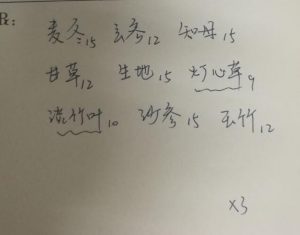 R:
麦冬15 玄参12 知母15
甘草12 生地15 灯心草9
淡竹叶10 沙参15 玉竹12
x3